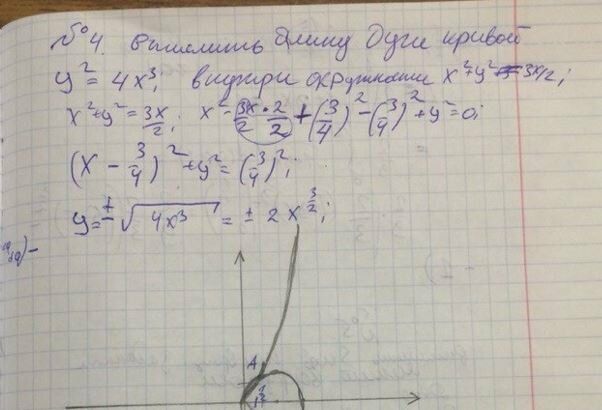 №4. Вычислить длину дуги кривой
y² = 4x³; внутри окружности x²+y² = 3x/2;
x²+y² = 3x/2; x² - 3x·2/2·2 + (3/4)² - (3/4)² + y² = 0;
(x - 3/4)² + y² = (3/4)²;
y = ± √4x³ = ± 2x^3/2;
A